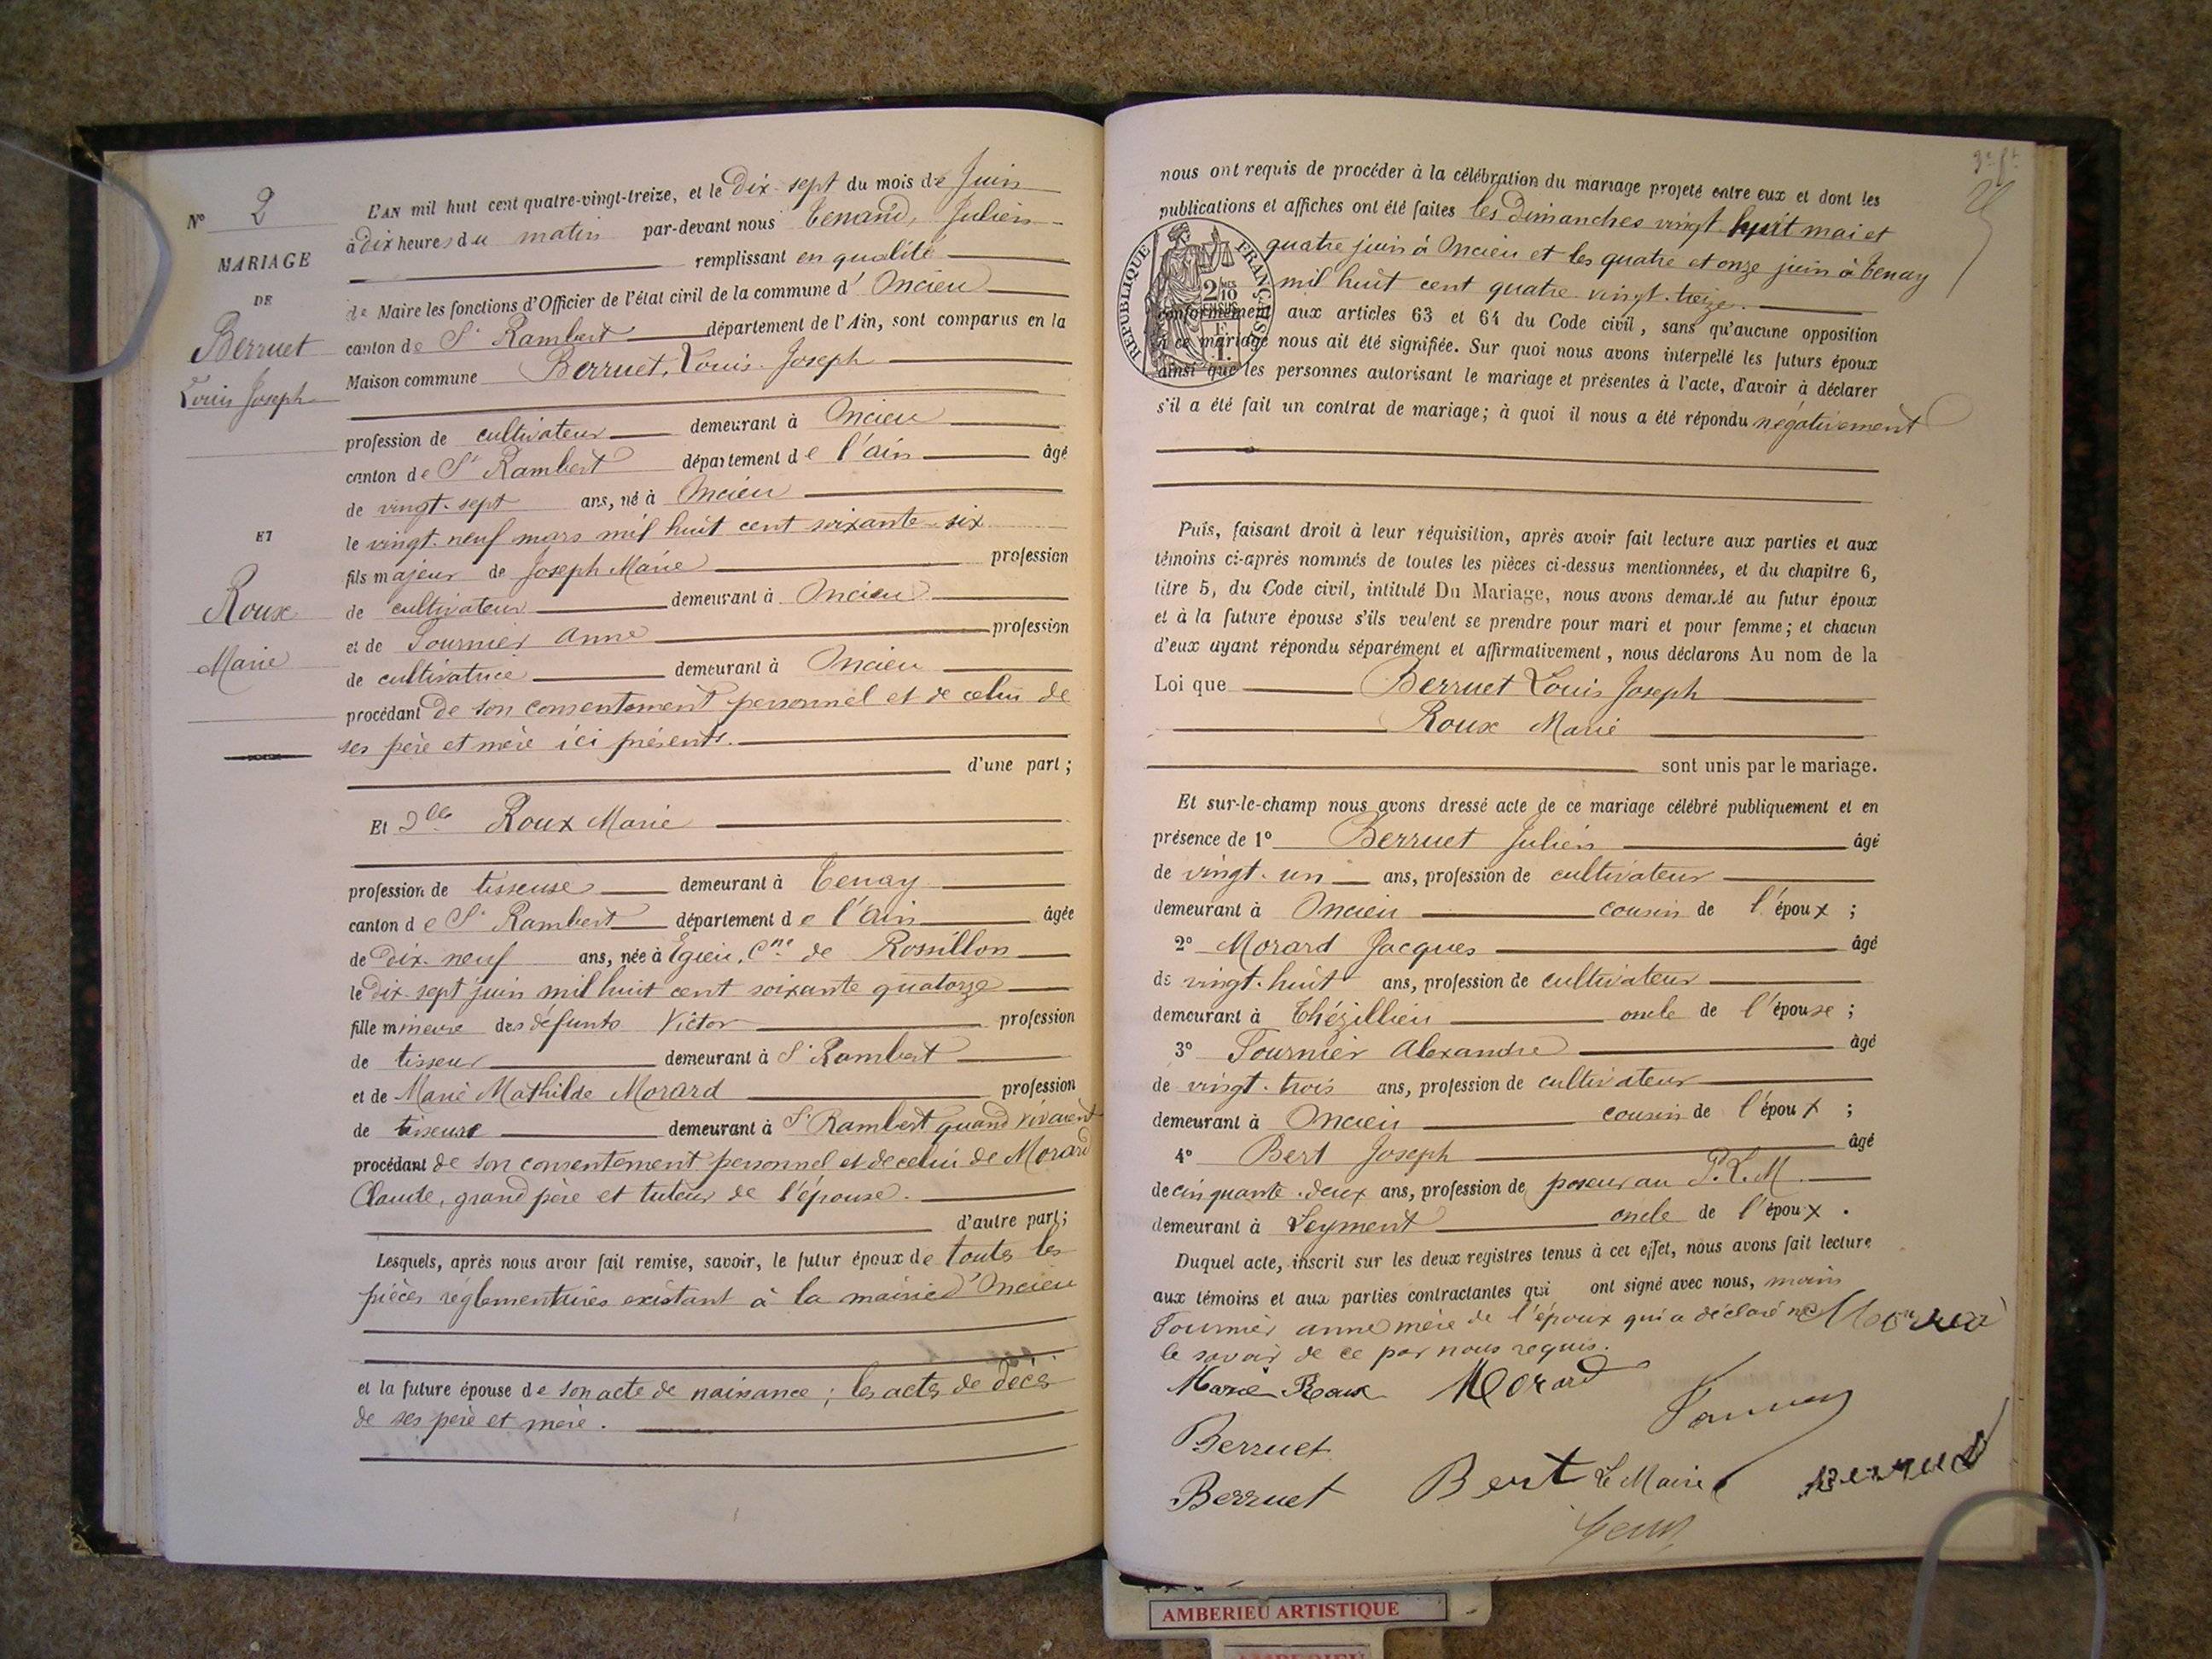 N° 2
MARIAGE
DE
Berruet
Louis Joseph
ET
Roux
Marie
L'AN mil huit cent quatre-vingt-treize, et le Dix-sept du mois de Juin
à dix heures du matin par-devant nous Tenand, Julien
remplissant en qualité
de Maire les fonctions d'Officier de l'état civil de la commune d' Oncieu
canton de St Rambert département de l'Ain, sont comparus en la
Maison commune Berruet, Louis Joseph
profession de cultivateur demeurant à Oncieu
canton de St Rambert département de l'ain âgé
de vingt-sept ans, né à Oncieu
le vingt-neuf mars mil huit cent soixante-six
fils majeur de Joseph Marie profession
de cultivateur demeurant à Oncieu
et de Fournier Anne profession
de cultivatrice demeurant à Oncieu
procédant de son consentement personnel et de celui de
ses père et mère ici présents.
d'une part;
Et Dlle Roux Marie
profession de tisseuse demeurant à Tenay
canton de St Rambert département de l'Ain âgée
de dix-neuf ans, née à Egieu, Cne de Rossillon
le dix-sept juin mil huit cent soixante quatorze
fille mineure des défunts Victor profession
de tisseur demeurant à St Rambert
et de Marie Mathilde Morard profession
de tisseuse demeurant à St Rambert quand vivaient
procédant de son consentement personnel et de celui de Morard
Claude, grand père et tuteur de l'épouse.
d'autre part;
Lesquels, après nous avoir fait remise, savoir, le futur époux de toutes les
pièces réglementaires existant à la mairie d'Oncieu
et la future épouse de son acte de naissance; les actes de décès
de ses père et mère.
nous ont requis de procéder à la célébration du mariage projeté entre eux et dont les
publications et affiches ont été faites les dimanches vingt-huit mai et
quatre juin à Oncieu et les quatre et onze juin à Tenay
mil huit cent quatre-vingt-treize.
RÉPUBLIQUE FRANÇAISE
2/10
EN SUS
conformément aux articles 63 et 64 du Code civil, sans qu'aucune opposition
à ce mariage nous ait été signifiée. Sur quoi nous avons interpellé les futurs époux
ainsi que les personnes autorisant le mariage et présentes à l'acte, d'avoir à déclarer
s'il a été fait un contrat de mariage; à quoi il nous a été répondu négativement
Puis, faisant droit à leur réquisition, après avoir fait lecture aux parties et aux
témoins ci-après nommés de toutes les pièces ci-dessus mentionnées, et du chapitre 6,
titre 5, du Code civil, intitulé Du Mariage, nous avons demandé au futur époux
et à la future épouse s'ils veulent se prendre pour mari et pour femme; et chacun
d'eux ayant répondu séparément et affirmativement, nous déclarons Au nom de la
Loi que Berruet Louis Joseph
Roux Marie
sont unis par le mariage.
Et sur-le-champ nous avons dressé acte de ce mariage célébré publiquement et en
présence de 1° Berruet Julien âgé
de vingt-un ans, profession de cultivateur
demeurant à Oncieu cousin de l'époux;
2° Morard Jacques âgé
de vingt-huit ans, profession de cultivateur
demeurant à Thézillieu oncle de l'épouse;
3° Fournier Alexandre âgé
de vingt-trois ans, profession de cultivateur
demeurant à Oncieu cousin de l'époux;
4° Bert Joseph âgé
de cinquante-deux ans, profession de poseur au P.L.M.
demeurant à Leyment oncle de l'époux.
Duquel acte, inscrit sur les deux registres tenus à cet effet, nous avons fait lecture
aux témoins et aux parties contractantes qui ont signé avec nous, moins
Fournier anne mère de l'époux qui a déclaré ne
le savoir de ce par nous requis.
Marie Roux Morard
Berruet
Berruet Bert Le Maire Berruet
AMBERIEU ARTISTIQUE
AMBERIEU